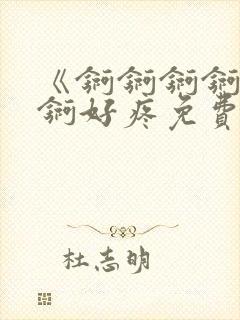 《锕锕锕锕
锕好疼免費
杜志明